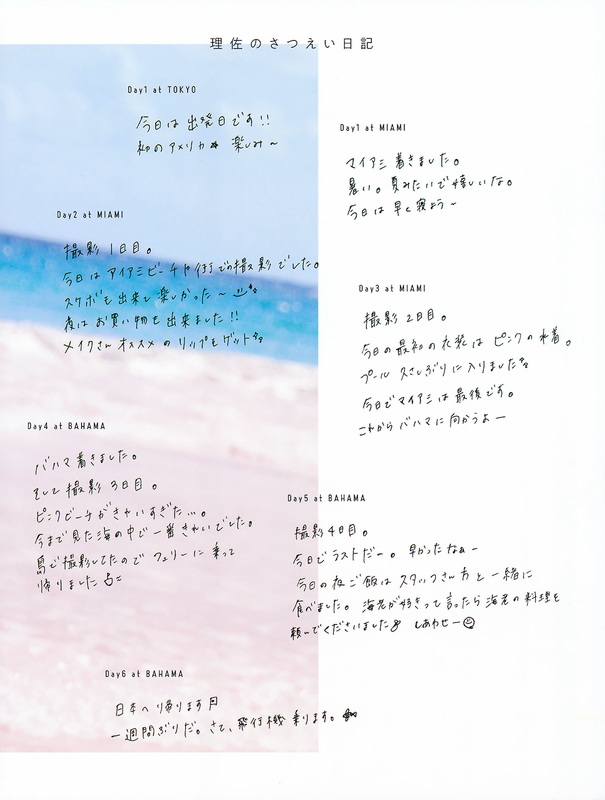 理佐のさつえい日記
Day1 at TOKYO
今日は出発日です!!
初のアメリカ★ 楽しみ〜
Day1 at MIAMI
マイアミ着きました。
暑い。夏みたいで嬉しいな。
今日は早く寝よう〜
Day2 at MIAMI
撮影1日目。
今日はマイアミビーチや街での撮影でした。
スケボーも出来て楽しかった〜
夜はお買い物も出来ました!!
メイクさんオススメのリップもゲット
Day3 at MIAMI
撮影2日目。
今日の最初の衣装はピンクの水着。
プール久さしぶりに入りました
今日でマイアミは最後です。
これからバハマに向かうよー
Day4 at BAHAMA
バハマ着きました。
そして撮影3日目。
ピンクビーチがきれいすぎた...。
今まで見た海の中で一番きれいでした。
島で撮影してたのでフェリーに乗って
帰りました
Day5 at BAHAMA
撮影4日目。
今日でラストだー。早かったなぁー
今日の夜ご飯はスタッフさん方と一緒に
食べました。海老が好きって言ったら海老の料理を
頼んでくださいました しあわせー
Day6 at BAHAMA
日本へ帰ります
一週間ぶりだ。さて、飛行機乗ります。